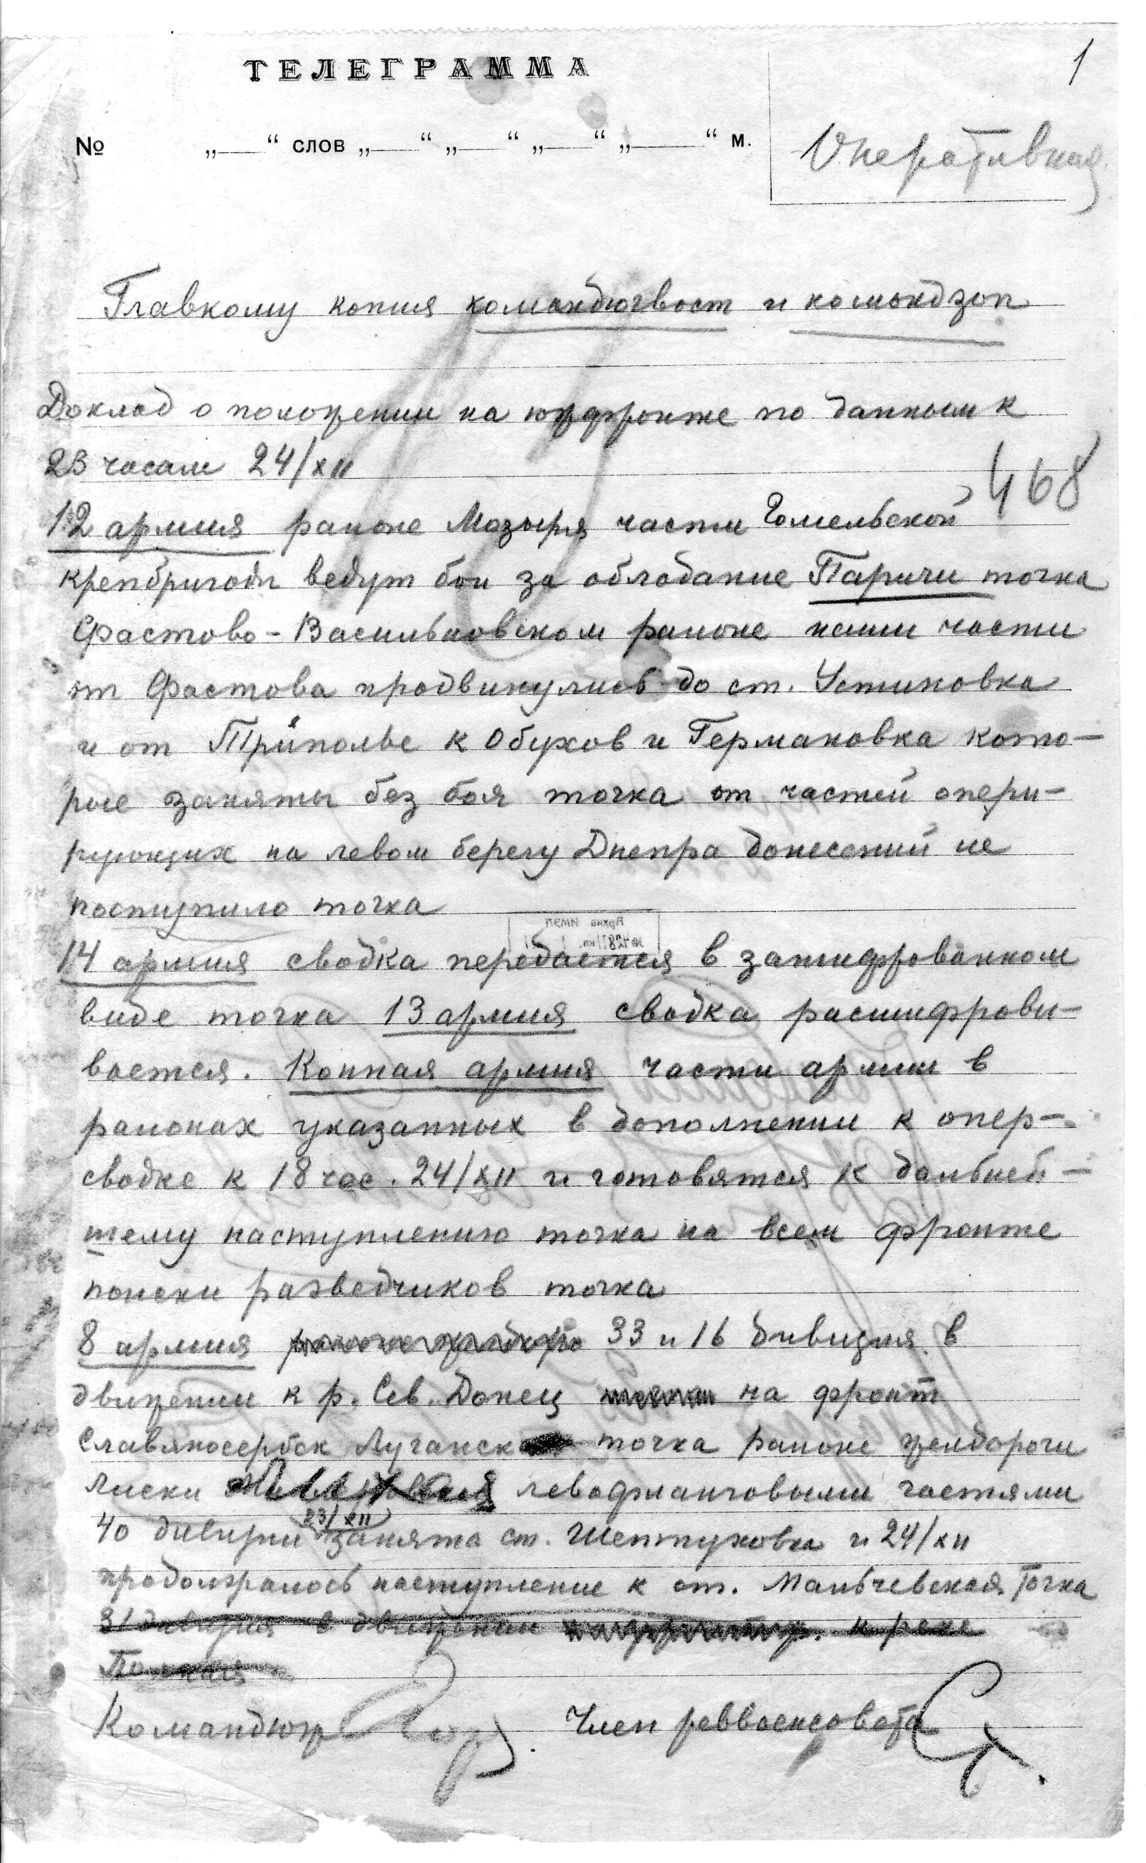 1
ТЕЛЕГРАММА
№ „—“ слов „—“ „—“ „—“ „—“ м.
Оперативная
Главкому копия командюгвост и командзап
Доклад о положении на южфронте по данным к
23 часам 24/XII
468
12 армия районе Мозыря части Гомельской
крепбригады ведут бои за обладание Паричи точка
Фастово-Васильковском районе наши части
от Фастова продвинулись до ст. Устиновка
и от Триполье к Обухов и Германовка кото-
рые заняты без боя точка от частей опери-
рующих на левом берегу Днепра донесений не
поступило точка
14 армия сводка передается в зашифрованном
виде точка 13 армия сводка расшифровы-
вается. Конная армия части армии в
районах указанных в дополнении к опер-
сводке к 18 час. 24/XII и готовятся к дальней-
шему наступлению точка на всем фронте
поиски разведчиков точка
8 армия 33 и 16 дивизия в
движении к р. Сев. Донец на фронт
Славяносербск Луганск точка районе желдороги
Лиски левофланговыми частями
40 дивизии 23/XII занята ст. Шептуховка и 24/XII
продолжалось наступление к ст. Мальчевская точка
31 дивизия в движении к реке
Командюж Член реввоенсовета